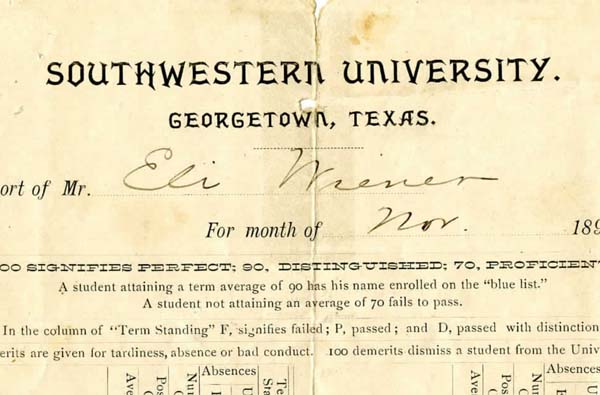 SOUTHWESTERN UNIVERSITY.
GEORGETOWN, TEXAS.
ort of Mr. Eli Wiener
For month of Nov. 189
00 SIGNIFIES PERFECT; 90, DISTINGUISHED; 70, PROFICIENT
A student attaining a term average of 90 has his name enrolled on the "blue list."
A student not attaining an average of 70 fails to pass.
In the column of "Term Standing" F, signifies failed; P, passed; and D, passed with distinction
erits are given for tardiness, absence or bad conduct. 100 demerits dismiss a student from the Univ
Absences Absences